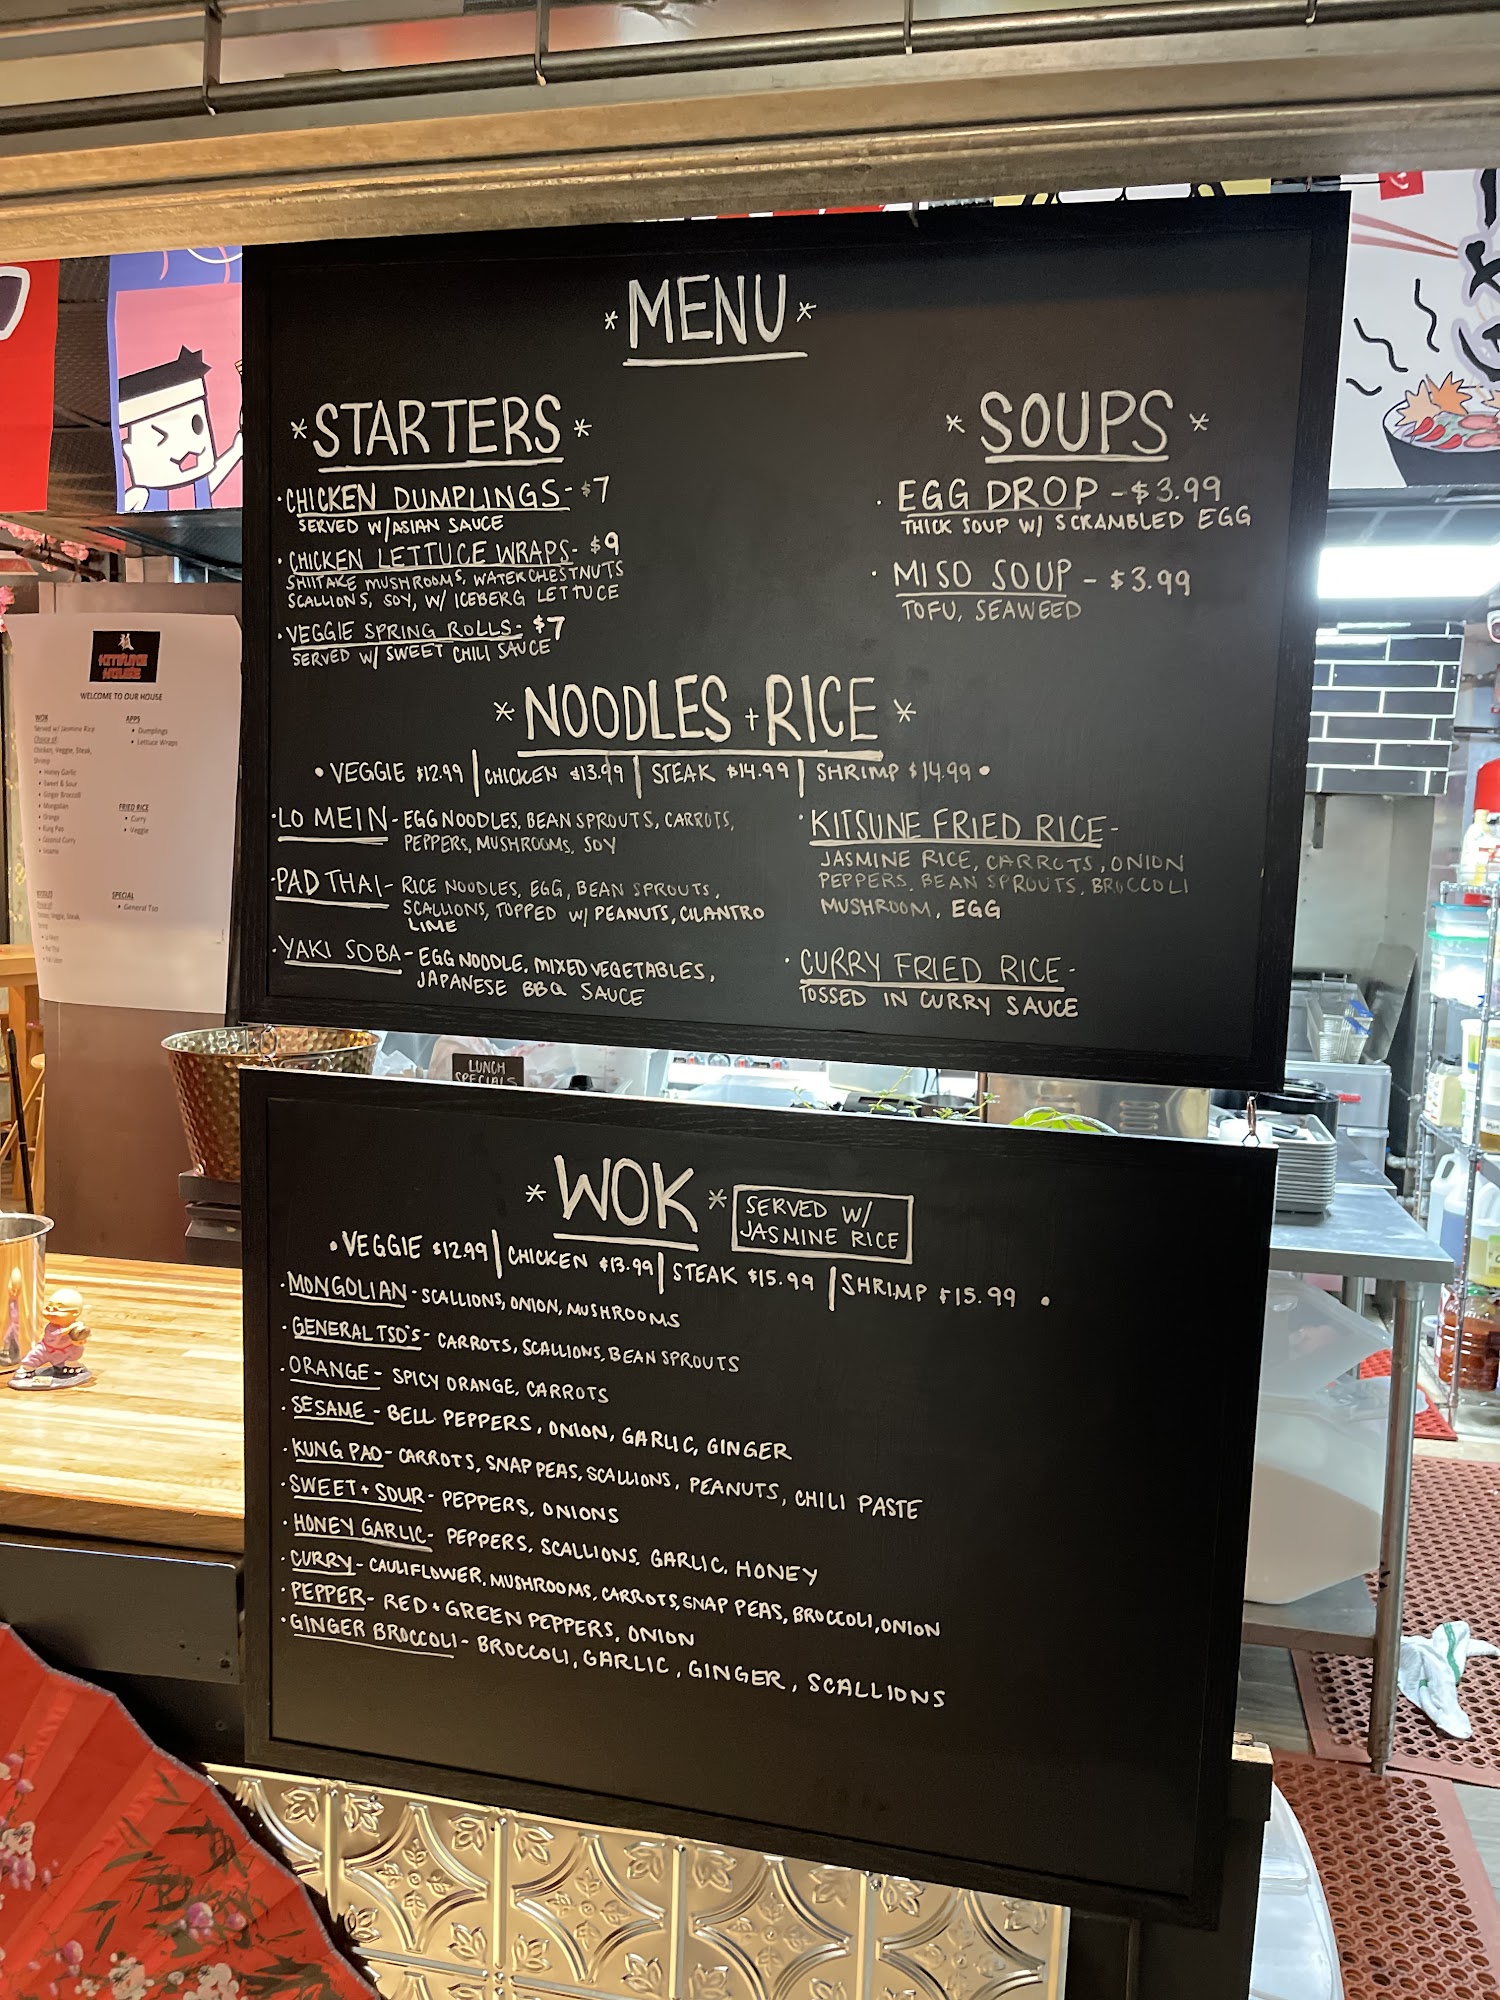 * MENU *
* STARTERS *
· CHICKEN DUMPLINGS - $7
SERVED W/ ASIAN SAUCE
· CHICKEN LETTUCE WRAPS - $9
SHIITAKE MUSHROOMS, WATER CHESTNUTS
SCALLIONS, SOY, W/ ICEBERG LETTUCE
· VEGGIE SPRING ROLLS - $7
SERVED W/ SWEET CHILI SAUCE
* SOUPS *
· EGG DROP - $3.99
THICK SOUP W/ SCRAMBLED EGG
· MISO SOUP - $3.99
TOFU, SEAWEED
* NOODLES + RICE *
• VEGGIE $12.99 | CHICKEN $13.99 | STEAK $14.99 | SHRIMP $14.99 •
· LO MEIN - EGG NOODLES, BEAN SPROUTS, CARROTS,
PEPPERS, MUSHROOMS, SOY
· PAD THAI - RICE NOODLES, EGG, BEAN SPROUTS,
SCALLIONS, TOPPED W/ PEANUTS, CILANTRO
LIME
· YAKI SOBA - EGG NOODLE, MIXED VEGETABLES,
JAPANESE BBQ SAUCE
· KITSUNE FRIED RICE -
JASMINE RICE, CARROTS, ONION
PEPPERS, BEAN SPROUTS, BROCCOLI
MUSHROOM, EGG
· CURRY FRIED RICE -
TOSSED IN CURRY SAUCE
LUNCH
SPECIALS
* WOK *
SERVED W/
JASMINE RICE
• VEGGIE $12.99 | CHICKEN $13.99 | STEAK $15.99 | SHRIMP $15.99 •
· MONGOLIAN - SCALLIONS, ONION, MUSHROOMS
· GENERAL TSO'S - CARROTS, SCALLIONS, BEAN SPROUTS
· ORANGE - SPICY ORANGE, CARROTS
· SESAME - BELL PEPPERS, ONION, GARLIC, GINGER
· KUNG PAO - CARROTS, SNAP PEAS, SCALLIONS, PEANUTS, CHILI PASTE
· SWEET + SOUR - PEPPERS, ONIONS
· HONEY GARLIC - PEPPERS, SCALLIONS, GARLIC, HONEY
· CURRY - CAULIFLOWER, MUSHROOMS, CARROTS, SNAP PEAS, BROCCOLI, ONION
· PEPPER - RED + GREEN PEPPERS, ONION
· GINGER BROCCOLI - BROCCOLI, GARLIC, GINGER, SCALLIONS
KITSUNE
HOUSE
WELCOME TO OUR HOUSE
WOK
Served w/ Jasmine Rice
Choice of:
Chicken, Veggie, Steak,
Shrimp
• Honey Garlic
• Sweet & Sour
• Ginger Broccoli
• Mongolian
• Orange
• Kung Pao
• Coconut Curry
• Sesame
APPS
• Dumplings
• Lettuce Wraps
FRIED RICE
• Curry
• Veggie
SPECIAL
• General Tso
• Lo Mein
• Pad Thai